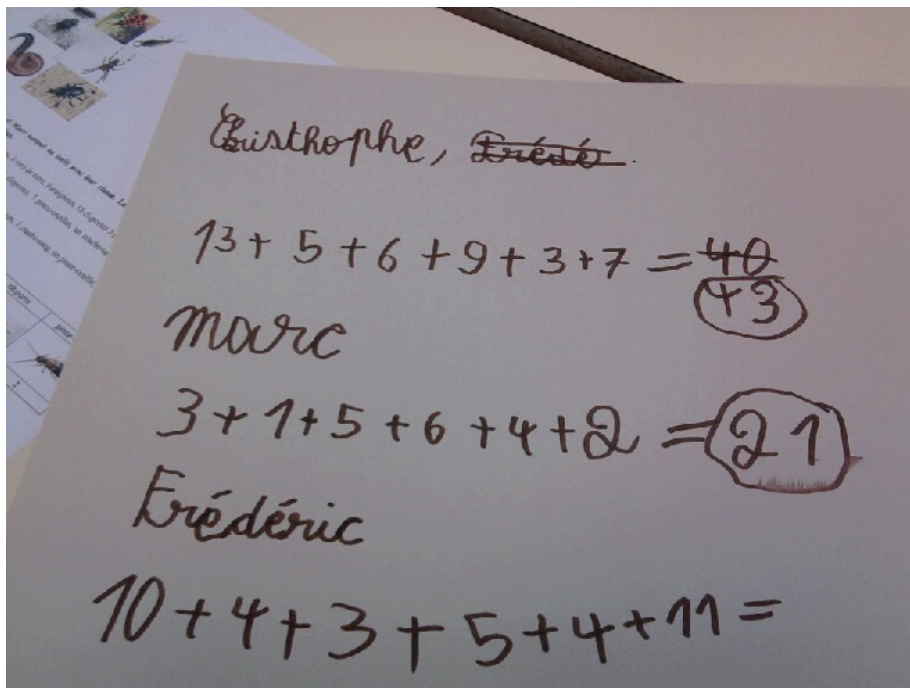 Cristhophe, Frédé
13 + 5 + 6 + 9 + 3 + 7 = 40
43
Marc
3 + 1 + 5 + 6 + 4 + 2 = 21
Frédéric
10 + 4 + 3 + 5 + 4 + 11 =